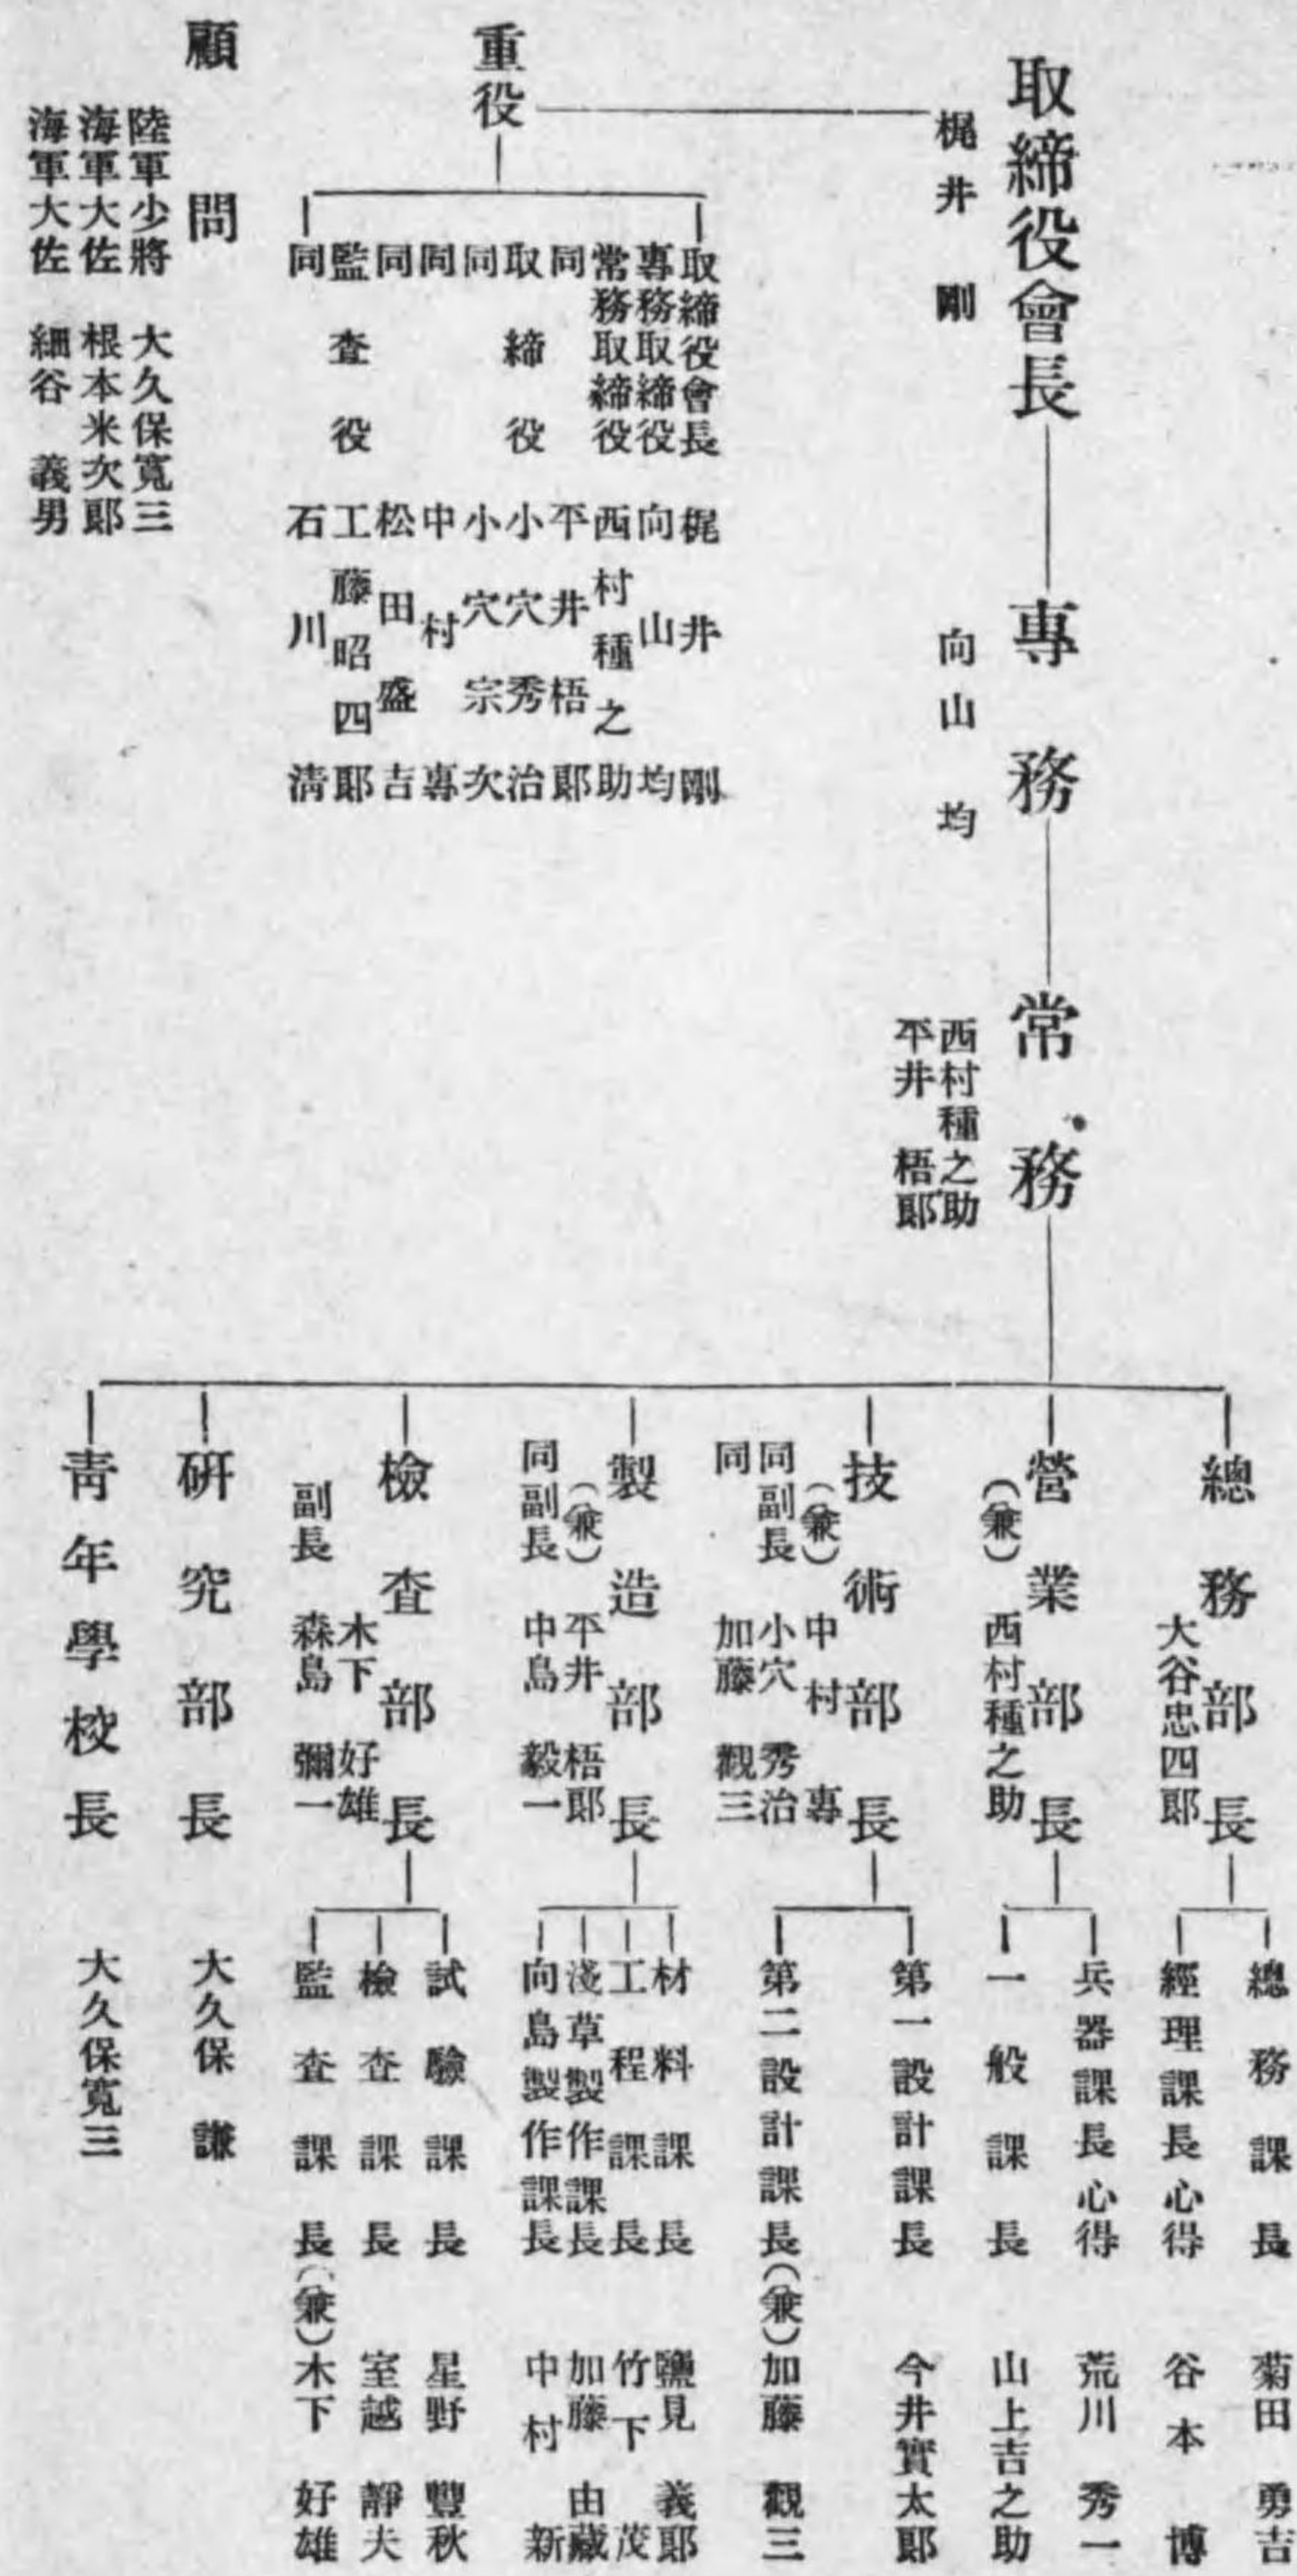 取締役會長
梶井剛
專務
向山均
常務
西村種之助
平井梧郎
重役
取締役會長 梶井剛
專務取締役 向山均
常務取締役 西村種之助
同 平井梧郎
取締役 小穴秀治
同 小穴宗次
同 中村專
同 松田盛吉
監査役 工藤昭四郎
同 石川清
顧問
陸軍少將 大久保寬三
海軍大佐 根本米次郎
海軍大佐 細谷義男
總務部長
大谷忠四郎
總務課長 菊田勇吉
經理課長心得 谷本博
營業部長
(兼) 西村種之助
兵器課長心得 荒川秀一
一般課長 山上吉之助
技術部長
(兼) 中村專
同副長 小穴秀治
同 加藤觀三
第一設計課長 今井實太郎
第二設計課長(兼) 加藤觀三
製造部長
(兼) 平井梧郎
同副長 中島毅一
材料課長 鹽見義郎
工程課長 竹下茂
淺草製作課長 加藤由藏
向島製作課長 中村新
檢査部長
木下好雄
副長 森島彌一
試驗課長 星野豐秋
檢査課長 室越靜夫
監査課長(兼) 木下好雄
研究部長 大久保謙
靑年學校長 大久保寬三